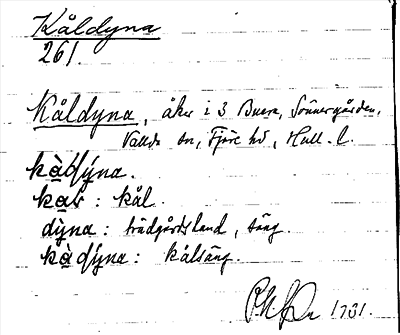 Kåldyna
261.
Kåldyna, åker i 3 Buera, Sönnergården,
Vallda sn, Fjäre hd, Hall. l.
kàḍýna.
kaḷ : kål.
dỳna : trädgårdsland, säng.
kàḍýna : kålsäng.
1931.